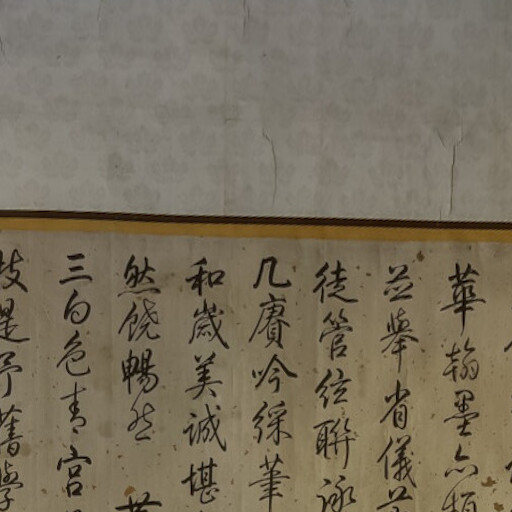 華翰墨亦頻
並舉省儀
徒管絃聯詠
几賡吟綵筆
和歲美誠堪
然饒暢然
三白色青宮
是予舊學